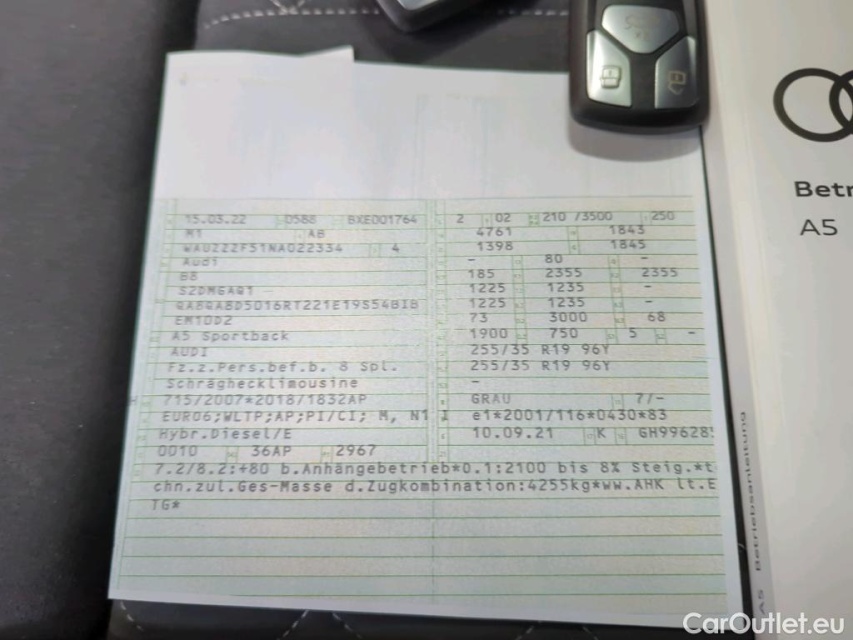 15.03.22 0588 BXE001764 2 02 210 /3500 250
M1 AB 4761 1843
WAUZZZF51NA022334 4 1398 1845
Audi - 80 -
B8 185 2355 2355
S2DMGAQ1 1225 1235 -
1225 1235 -
EM1OD2 73 3000 68
A5 Sportback 1900 750 5 -
AUDI 255/35 R19 96Y
Fz.z.Pers.bef.b. 8 Spl. 255/35 R19 96Y
Schräghecklimousine -
715/2007*2018/1832AP GRAU 7/-
EURO6;WLTP;AP;PI/CI; M, N1 I e1*2001/116*0430*83
Hybr.Diesel/E 10.09.21 K GH99628
0010 36AP 2967
7.2/8.2:+80 b.Anhängebetrieb*0.1:2100 bis 8% Steig.*t
chn.zul.Ges-Masse d.Zugkombination:4255kg*ww.AHK lt.E
TG*
Betr
A5
A5 Betriebsanleitung
CarOutlet.eu